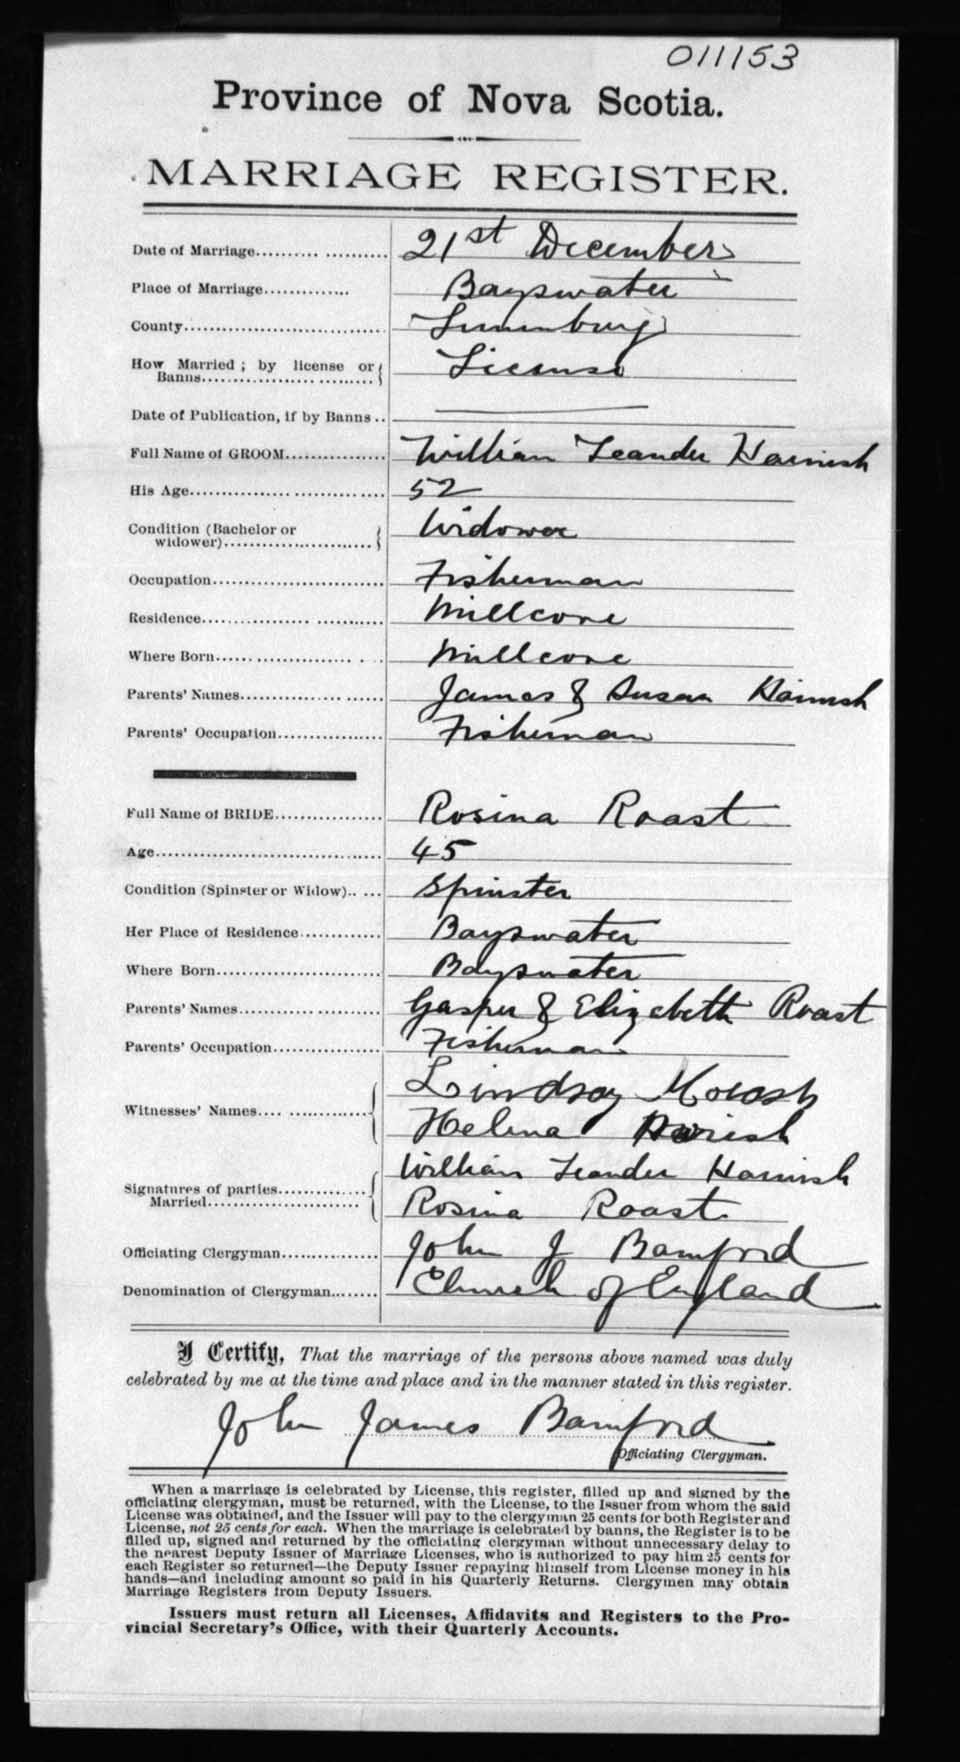 011153
Province of Nova Scotia.
MARRIAGE REGISTER.
Date of Marriage.......... .......... 21st December
Place of Marriage.............. Bayswater
County.............................. Lunenburg
How Married ; by license or Banns.................... .......... License
Date of Publication, if by Banns ..
Full Name of GROOM............... William Leander Harnish
His Age.............................. 52
Condition (Bachelor or widower)........................ Widower
Occupation.......................... Fisherman
Residence................ .......... Millcove
Where Born.................... . .. Millcove
Parents' Names................ ...... James & Susan Harnish
Parents' Occupation................ Fisherman
Full Name of BRIDE................ Rosina Roast
Age................................... 45
Condition (Spinster or Widow).. ... Spinster
Her Place of Residence............ Bayswater
Where Born......................... Bayswater
Parents' Names............ .......... Gasper & Elizabeth Roast
Parents' Occupation................ Fisherman
Witnesses' Names.... ............. Lindsay
Helena
Signatures of parties Married....................... William Leander Harnish
Rosina Roast
Officiating Clergyman............... John J Bamford
Denomination of Clergyman....... Church of England
I Certify, That the marriage of the persons above named was duly
celebrated by me at the time and place and in the manner stated in this register.
John James Bamford
Officiating Clergyman.
When a marriage is celebrated by License, this register, filled up and signed by the
officiating clergyman, must be returned, with the License, to the Issuer from whom the said
License was obtained, and the Issuer will pay to the clergyman 25 cents for both Register and
License, not 25 cents for each. When the marriage is celebrated by banns, the Register is to be
filled up, signed and returned by the officiating clergyman without unnecessary delay to
the nearest Deputy Issuer of Marriage Licenses, who is authorized to pay him 25 cents for
each Register so returned—the Deputy Issuer repaying himself from License money in his
hands—and including amount so paid in his Quarterly Returns. Clergymen may obtain
Marriage Registers from Deputy Issuers.
Issuers must return all Licenses, Affidavits and Registers to the Pro-
vincial Secretary's Office, with their Quarterly Accounts.